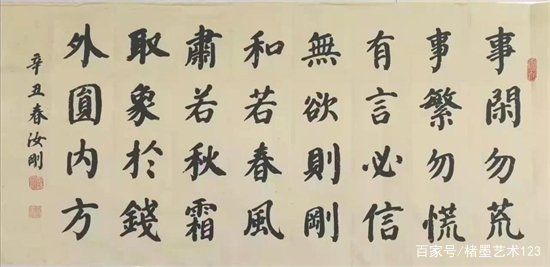 事閑勿荒
事繁勿慌
有言必信
無欲則剛
和若春風
肅若秋霜
取象於錢
外圓内方
辛丑春汝剛
百家号/楮墨艺术123